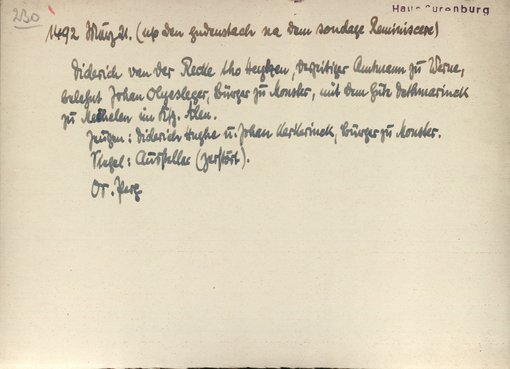 230
Haus Surenburg
1492 März 21. (up den gudenstach na dem sondage Reminiscere)
Diderich van der Recke tho Heyhen, derzeitiger Amtmann zu Werne,
belehnt Johan Olyesleger, Bürger zu Monster, mit dem Gute Dethmarinck
zu Mechelen im Ksp. Alen.
Zeugen: Diderich Hughe u. Johan Kerkerinck, Bürger zu Monster.
Siegel: Aussteller (zerstört).
Or. Perg